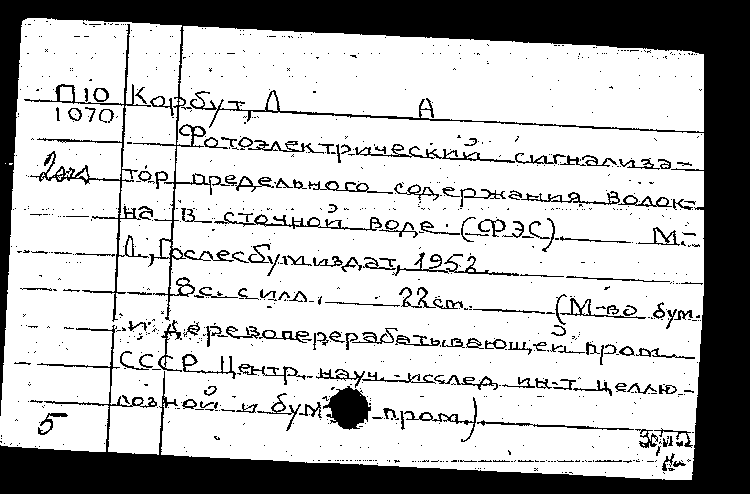 П10 Корбут, Л А
1070
Фотоэлектрический сигнализа-
2экз тор предельного содержания волок-
на в сточной воде. (СФЭС). М.-
Л., Гослесбумиздат, 1952.
8с. с илл., 22см. (М-во бум.
и деревоперерабатывающей пром.
СССР Центр. науч.-исслед. ин-т целлю-
лозной и бум- пром.).
5